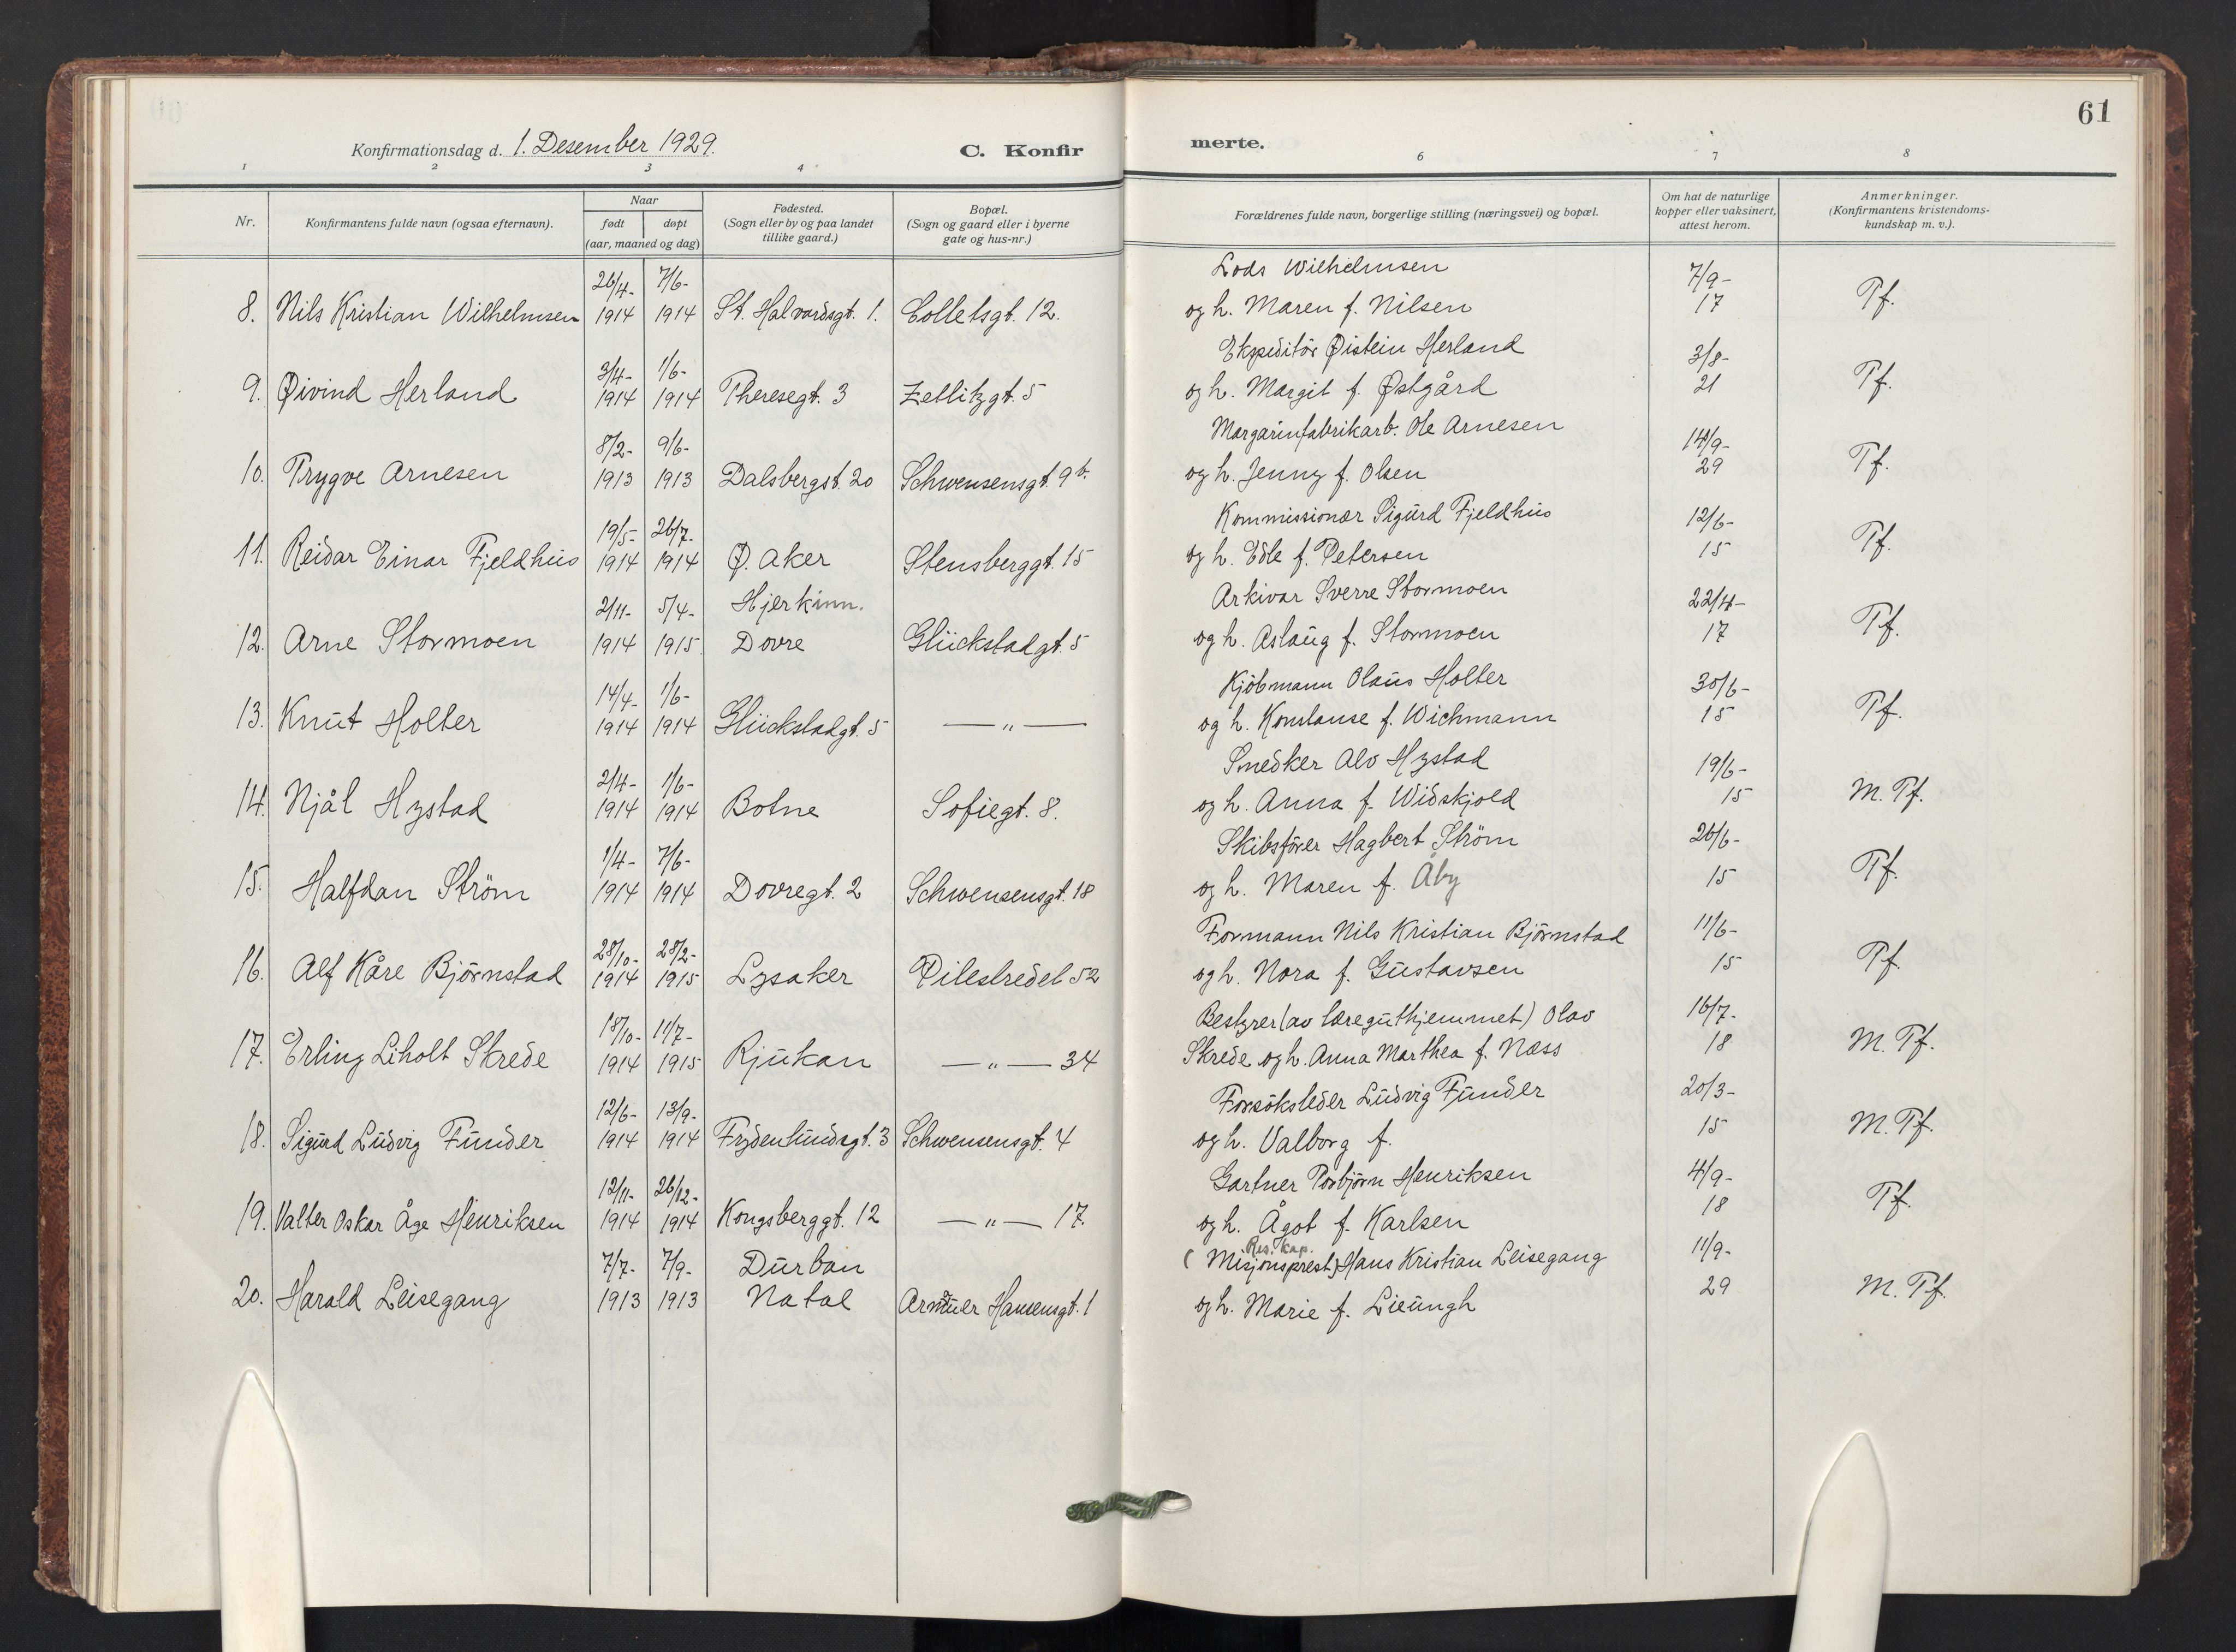 61
Konfirmationsdag d. 1. Desember 1929.
C. Konfir
merte.
1 2 3 4 6 7 8
Nr.
Konfirmantens fulde navn (ogsaa efternavn).
Naar
født døpt
(aar, maaned og dag)
Fødested.
(Sogn eller by og paa landet
tillike gaard.)
Bopæl.
(Sogn og gaard eller i byerne
gate og hus-nr.)
Forældrenes fulde navn, borgerlige stilling (næringsvei) og bopæl.
Om hat de naturlige
kopper eller vaksinert,
attest herom.
Anmerkninger.
(Konfirmantens kristendoms-
kundskap m. v.).
26/4- 7/6- Lods Wilhelmsen 7/9-
8. Nils Kristian Wilhelmsen 1914 1914 St. Halvardsgt. 1. Colletsgt. 12. og h. Maren f. Nilsen 17 Tf.
3/4- 1/6- Ekspeditör Øistein Herland 3/8-
9. Øivind Herland 1914 1914 Theresegt. 3 Zetlitzgt. 5 og h. Margit f. Østgård 21 Tf.
8/2- 9/6- Margarinfabrikarb. Ole Arnesen 14/9-
10. Trygve Arnesen 1913 1913 Dalsbergst. 20 Schwensensgt. 9 b. og h. Jenny f. Olsen 29 Tf.
19/5- 26/7- Kommissionær Sigurd Fjeldhus 12/6-
11. Reidar Einar Fjeldhus 1914 1914 Ø. Aker Stensberggt. 15 og h. Edle f. Petersen 15 Tf.
2/11- 5/4- Hjerkinn. Arkivar Sverre Stormoen 22/4-
12. Arne Stormoen 1914 1915. Dovre Glückstadgt. 5 og h. Aslaug f. Stormoen 17 Tf.
14/4- 1/6- Kjöbmann Olaus Holter 30/6-
13. Knut Holter 1914 1914 Glückstadgt. 5 — " — og h. Konstanse f. Wichmann 15 Tf.
2/4- 1/6- Snedker Alv Hystad 19/6-
14. Njål Hystad 1914 1914 Botne Sofiegt. 8. og h. Anna f. Widskjold 15 M. Tf.
1/4- 7/6- Skibsförer Hagbert Ström 26/6-
15. Halfdan Ström 1914 1914 Dovregt. 2 Schwensensgt. 18 og h. Maren f. Åby 15 Tf.
28/10- 28/2- Formann Nils Kristian Björnstad 11/6-
16. Alf Kåre Björnstad 1914 1915 Lysaker Pilestredet 52 og h. Nora f. Gustavsen 15 Tf.
18/10- 11/7- Bestyrer (av læreguthjemmet) Olav 16/7-
17. Erling Liholt Skrede 1914 1915 Rjukan — " — 34 Skrede og h. Anna Marthea f. Næss 18 M. Tf.
12/6- 13/9- Forsöksleder Ludvig Funder 20/3-
18. Sigurd Ludvig Funder 1914 1914 Frydenlundsgt. 3 Schwensensgt. 4 og h. Valborg f. 15 M. Tf.
12/11- 26/12- Gartner Torbjörn Henriksen 4/9-
19. Valter Oskar Åge Henriksen 1914 1914 Kongsberggt. 12 — " — 17. og h. Ågot f. Karlsen 18 Tf.
Res. kap.
7/7- 7/9- Durban (Misjonsprest) Hans Kristian Leisegang 11/9-
20. Harald Leisegang 1913 1913 Natal Armauer Hansensgt. 1 og h. Marie f. Lieungh 29 M. Tf.